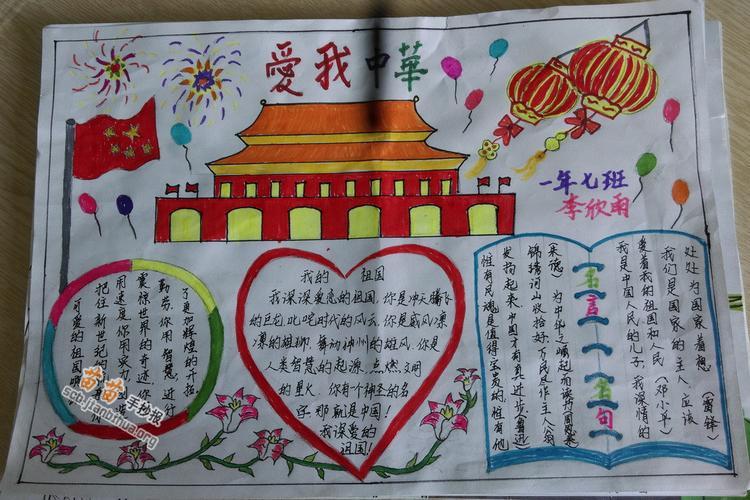 愛我中華
一年七班
李欣雨
可爱的祖国啊
把住新世纪的
用速度,你用实力创造
震惊世界的奇迹,你
勤劳,你用智慧,进行
了更加辉煌的开拓
我的 祖国
我深深爱恋的祖国,你是冲天腾飞
的巨龙,叱咤时代的风云,你是威风凛
凛的雄狮,舞动神州的雄风,你是
人类智慧的起源,点燃文明
的星火,你有一个神圣的名
字,那就是中国!
我深爱的
祖国!
惟有民魂是值得宝贵的 惟有他
发扬起来,中国才有真进步(鲁迅)
锦绣河山收拾好,万民尽作主人翁
(朱德) 为中华之崛起而读书(周恩来)
名言名句
我是中国人民的儿子,我深情的
爱着我的祖国和人民(邓小平)
我们是国家的主人 应该
处处为国家着想 (雷锋)
苗苗手抄报